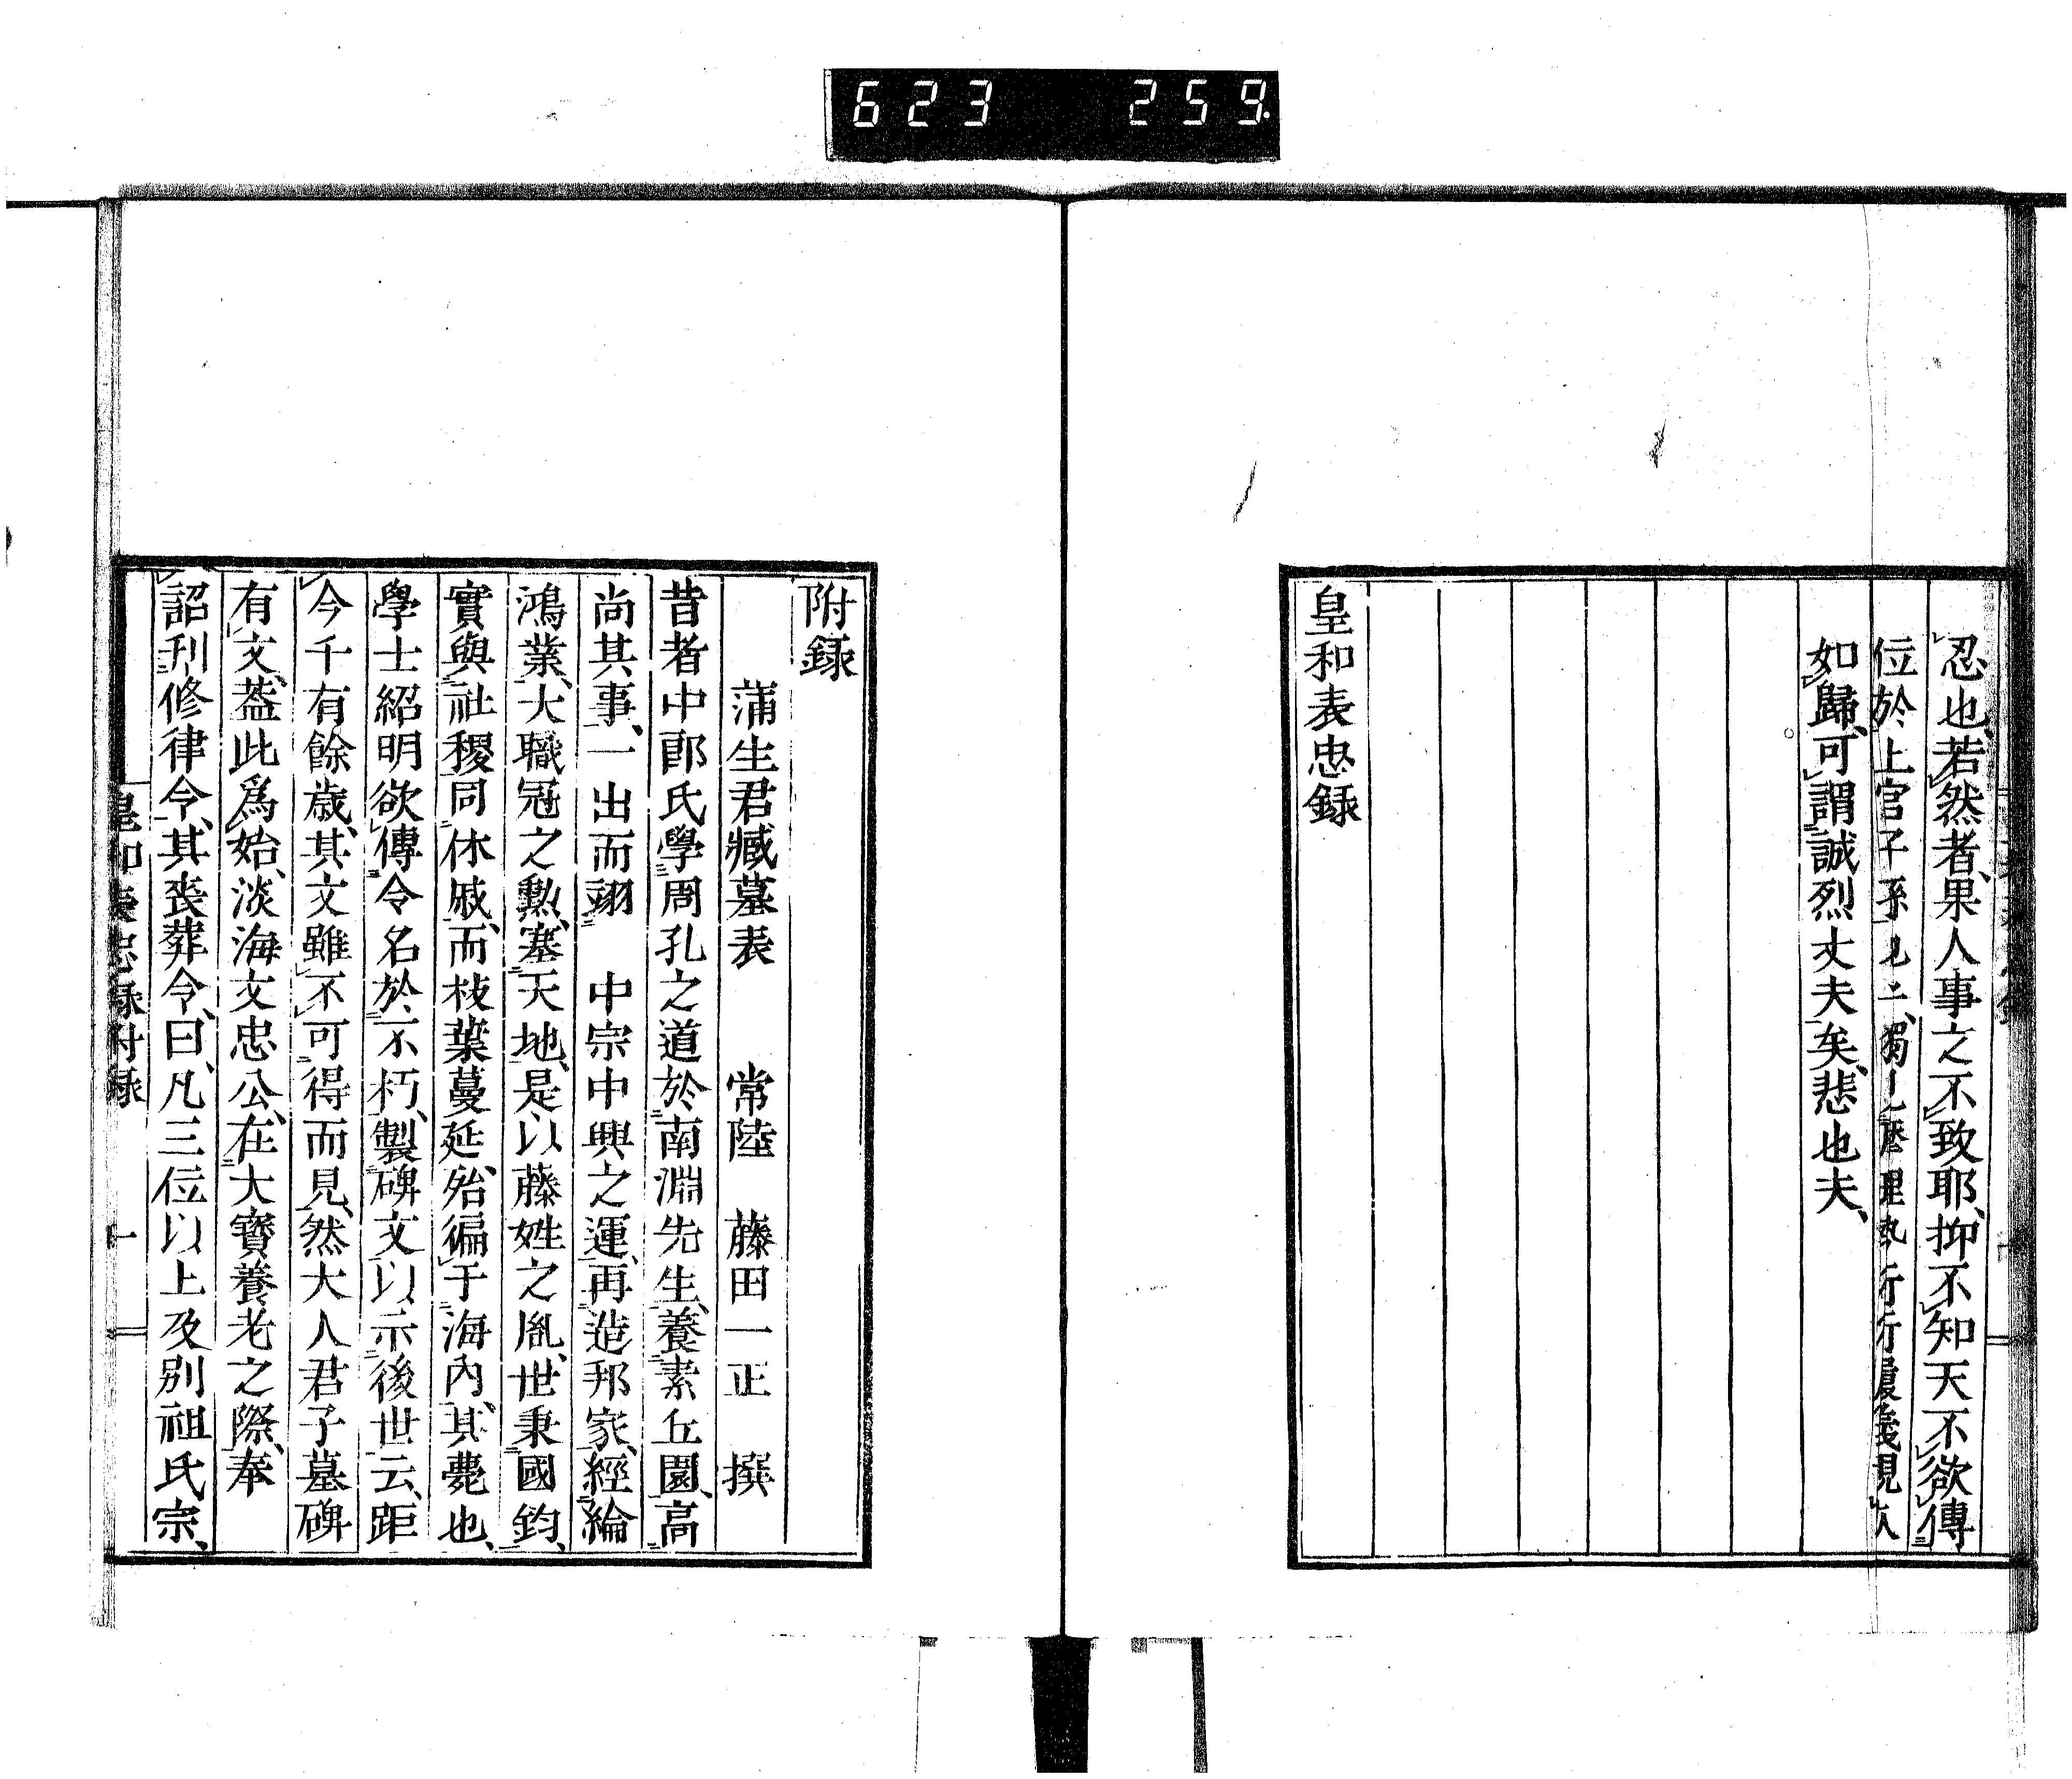 623 259
忍也、若然者、果人事之不致耶、抑不知天不欲傳
位於上官子孫
如歸、可謂誠烈丈夫矣、悲也夫、
皇和表忠録
附録
蒲生君臧墓表 常陸 藤田一正 撰
昔者中郎氏學周孔之道於南淵先生、養素丘園、高
尚其事、一出而翊 中宗中興之運、再造邦家、經綸
鴻業、大職冠之勲、塞天地、是以藤姓之胤、世秉國鈞、
實與社稷同休戚、而枝葉蔓延、殆徧于海內、其薨也、
學士紹明欲傳令名於不朽、製碑文以示後世云、距
今千有餘歲、其文雖不可得而見、然大人君子墓碑
有文、蓋此爲始、淡海文忠公、在大寶養老之際、奉
詔刊修律令、其喪葬令、曰、凡三位以上及別祖氏宗、
皇和表忠録附録 一